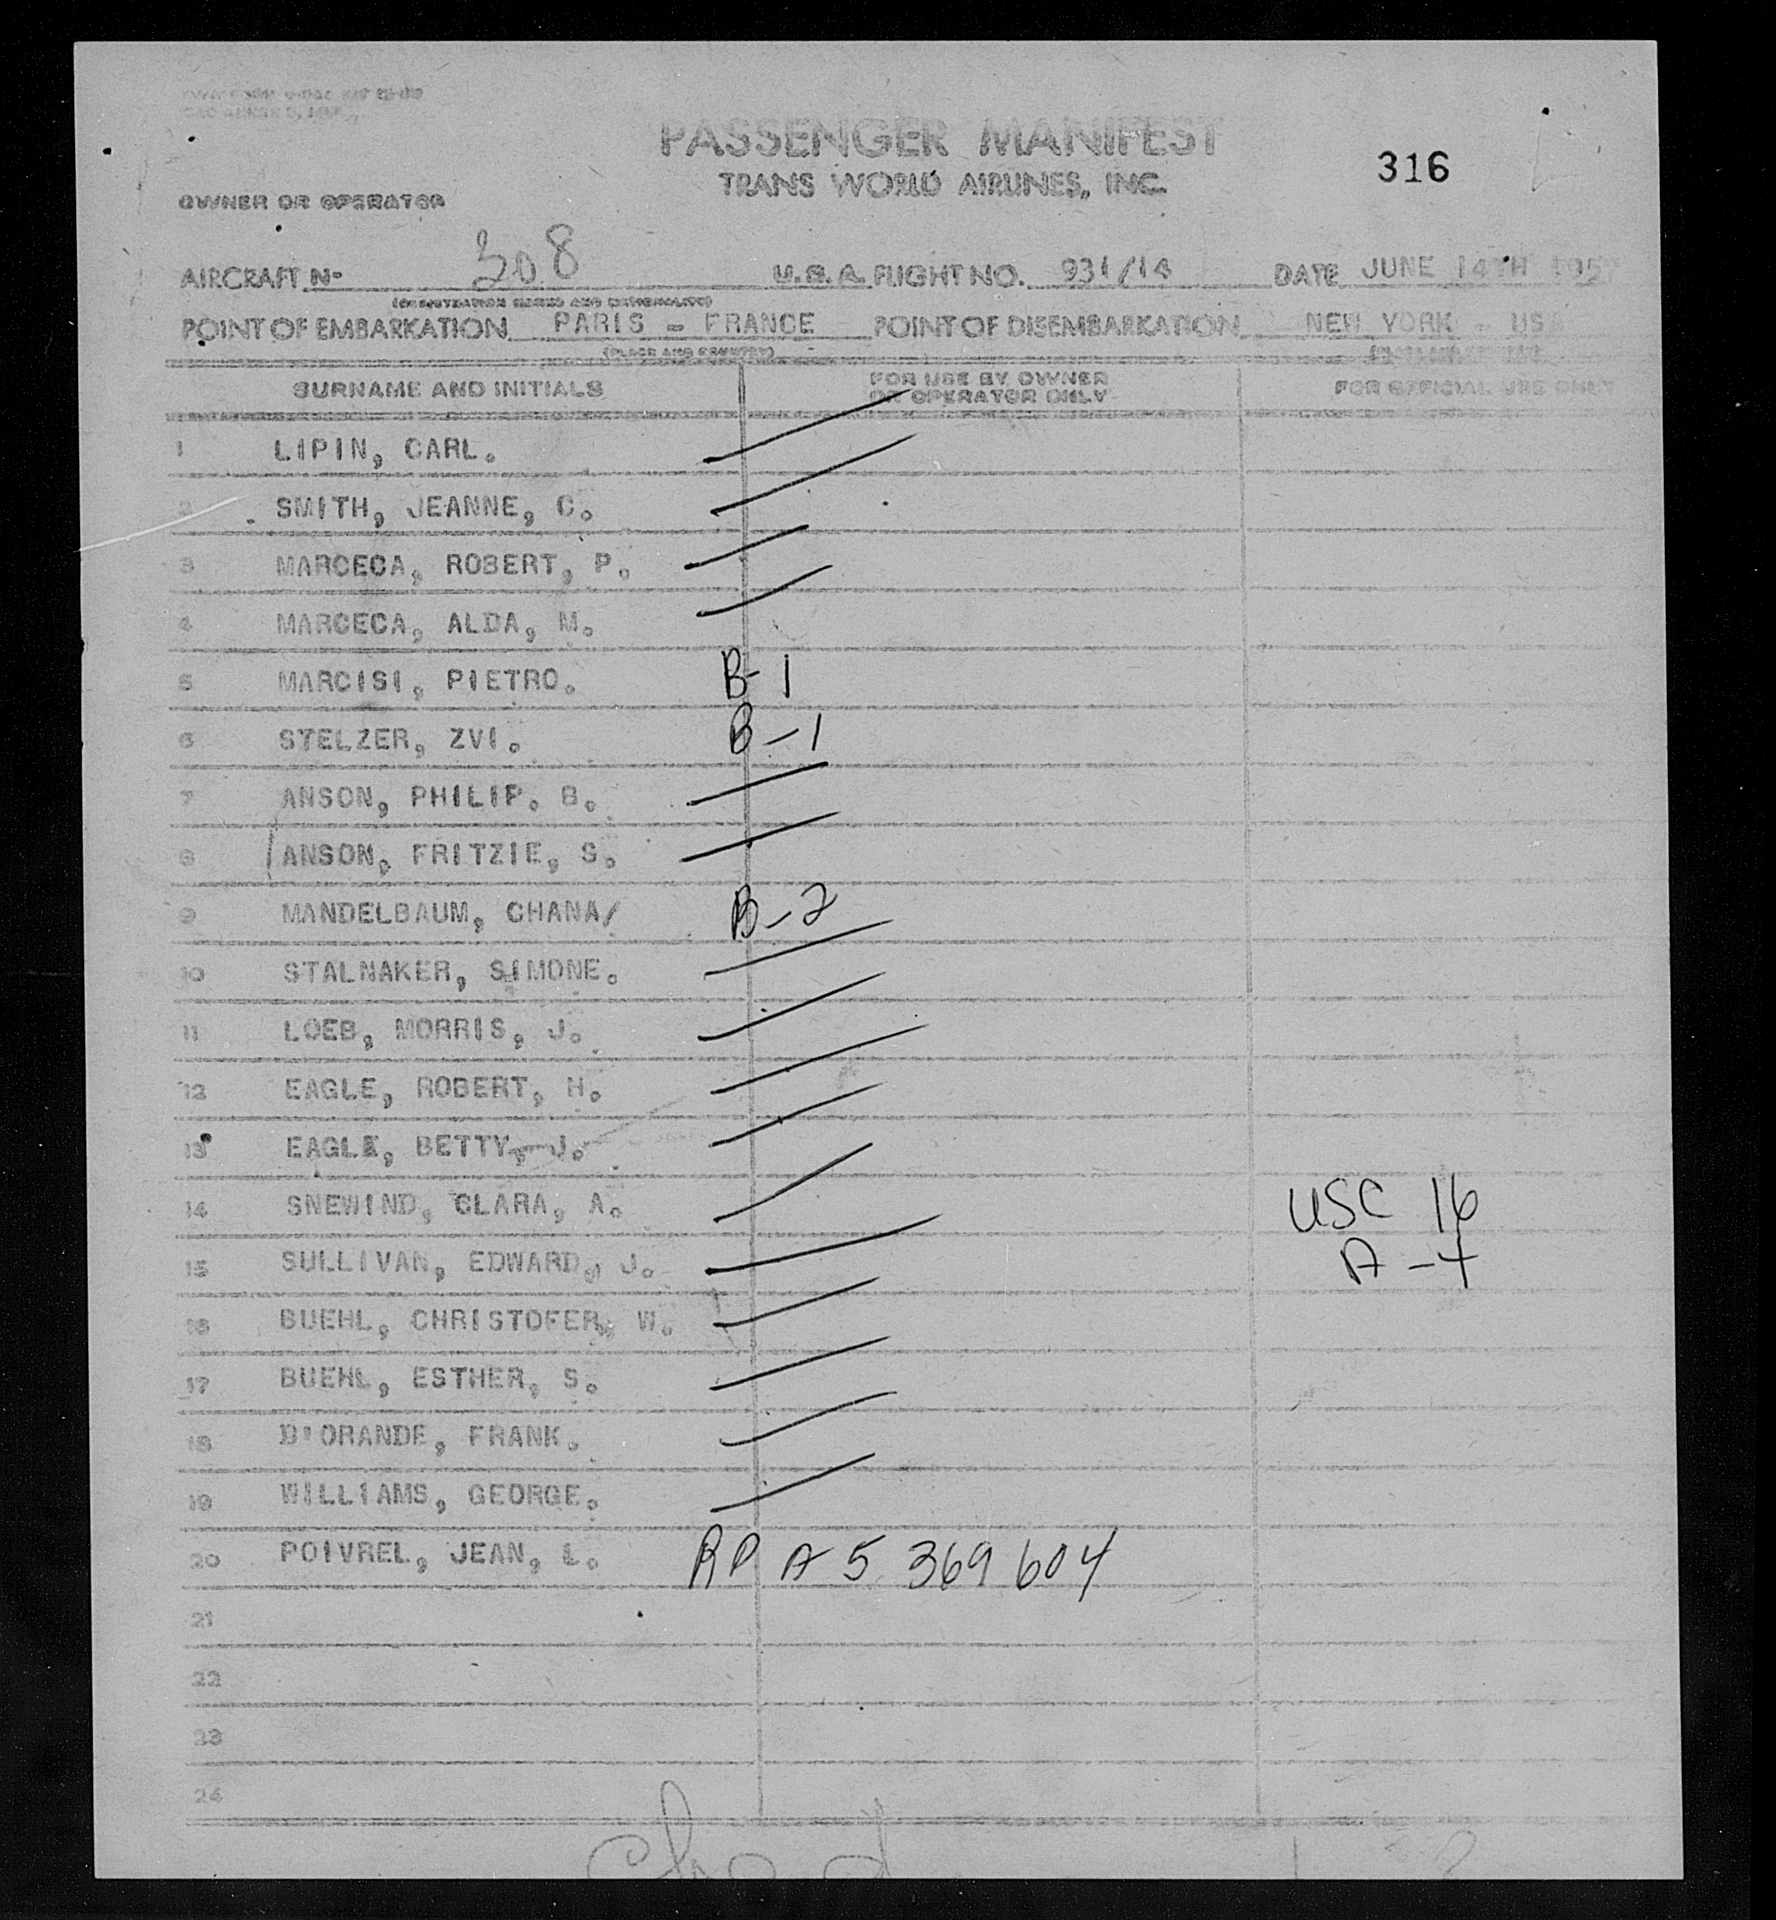 PASSENGER MANIFEST
316
TRANS WORLD AIRLINES, INC.
OWNER OR OPERATOR
AIRCRAFT Nº 308 U.S.A. FLIGHT NO. 931/14 DATE JUNE 14TH 195
(REGISTRATION MARKS AND NATIONALITY)
POINT OF EMBARKATION PARIS - FRANCE POINT OF DISEMBARKATION NEW YORK - USA
(PLACE AND COUNTRY)
SURNAME AND INITIALS FOR USE BY OWNER OR OPERATOR ONLY FOR OFFICIAL USE ONLY
1 LIPIN, CARL.
2 SMITH, JEANNE, C.
3 MARCECA, ROBERT, P.
4 MARCECA, ALDA, M.
5 MARCISI, PIETRO. B-1
6 STELZER, ZVI. B-1
7 ANSON, PHILIP. B.
8 ANSON, FRITZIE, S.
9 MANDELBAUM, CHANA/ B-2
10 STALNAKER, SIMONE.
11 LOEB, MORRIS, J.
12 EAGLE, ROBERT, H.
13 EAGLE, BETTY, J.
14 SNEWIND, CLARA, A. USC 16
15 SULLIVAN, EDWARD, J. A-4
16 BUEHL, CHRISTOFER, W.
17 BUEHL, ESTHER, S.
18 D'ORANDE, FRANK.
19 WILLIAMS, GEORGE.
20 POIVREL, JEAN, L. RP A5 369 604
21
22
23
24